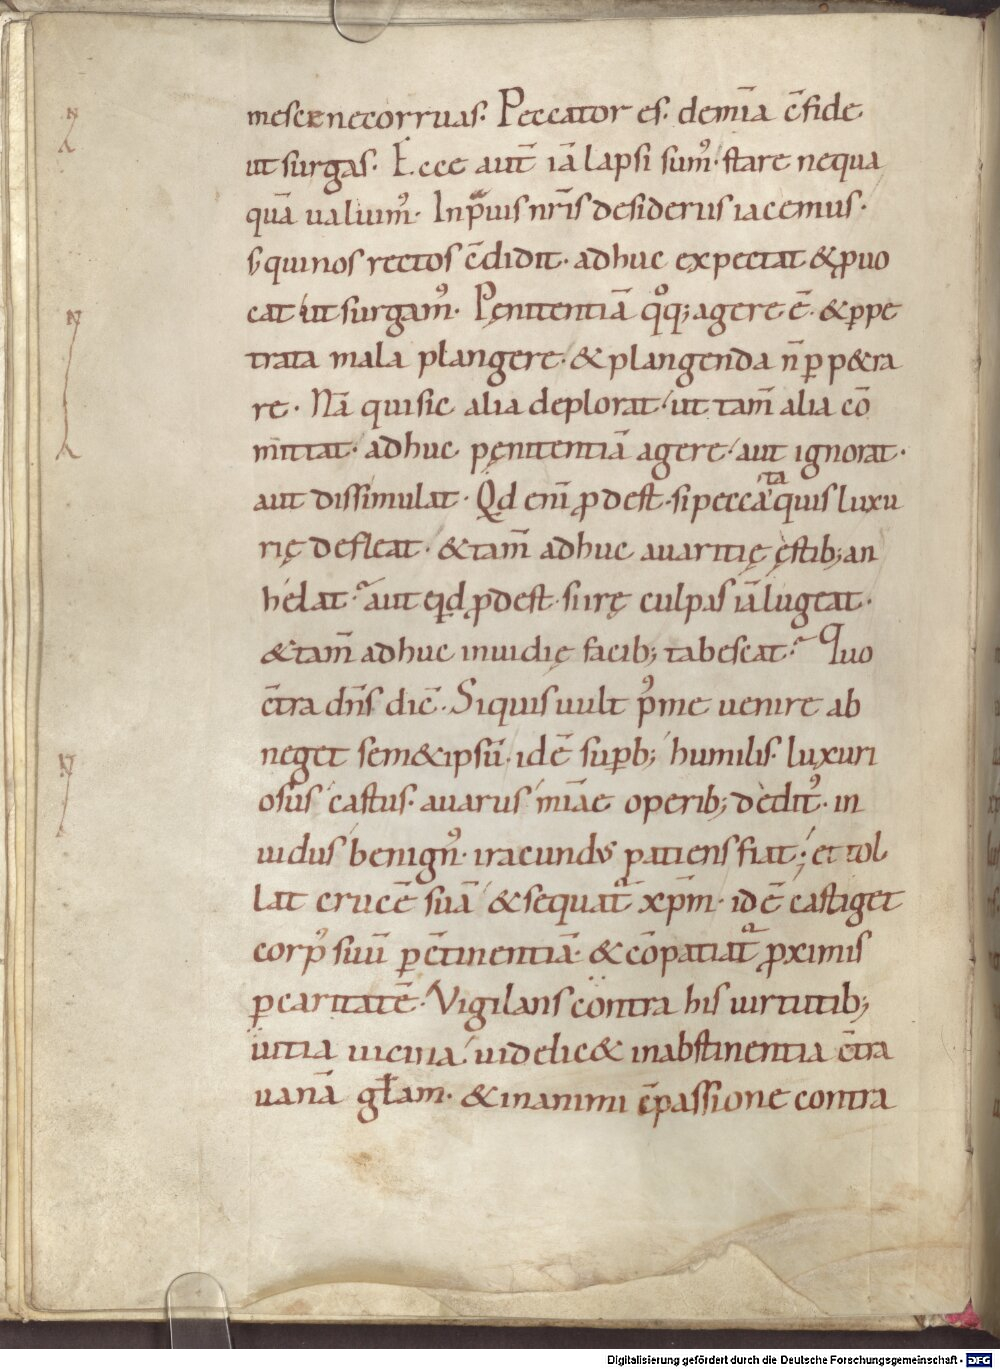 mescenecorruas. Peccator es. demīa c̄fide
ut surgas. Ecce aut̄ iā lapsi sumꝰ. stare nequa
quā ualuimꝰ. In prauis nr̄is desiderus iacemus.
Sꝫ qui nos rectos c̄didit. adhuc expectat & ꝓuo
cat ut surgamꝰ. Pęnitentiā qͦqꝫ agere ē. & ꝑpe
trata mala plangere. & plangenda n̄ ꝑp&ra
re. Nā qui sic alia deplorat. ut tam̄ alia cō
mittat. adhuc pęnitentiā agere. aut ignorat.
aut dissimulat. Qd eni ꝓdest. si peccata quis luxu
rię defleat. & tam̄ adhuc auaritię ęstibꝫ an
helat. aut qid ꝓdest. si irę culpas iā lugeat.
& tam̄ adhuc inuidię facibꝫ tabescat. Quo
c̄tra dn̄s dic̄. Siquis uult pꝰ me uenire ab
neget sem&ipsū. id ē supbꝫ humilis. luxuri
osus castus. auarus mīae operibꝫ dèditꝰ. in
uidus benignꝰ. iracundus patiens fiat. et tol
lat crucē suā & sequat᷑ xp̄m. id ē castiget
corpꝰ suū ꝑ c̄tinentiā. & cōpatiat᷑ ꝓximis
ꝑ caritatē. Vigilans contra his uirtutibꝫ
uitia uicina. uidelic& in abstinentia c̄tra
uanā gl̄am. & in animi c̄passione contra